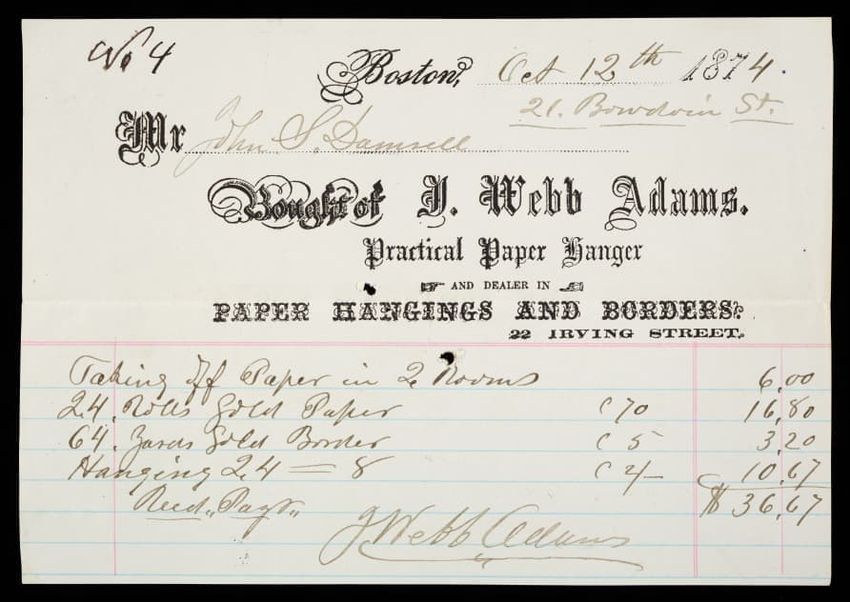 No 4
Boston, Oct 12th 1874.
21. Bowdoin St.
Mr John S. Damrell
Bought of J. Webb Adams.
Practical Paper Hanger
AND DEALER IN
PAPER HANGINGS AND BORDERS.
22 IRVING STREET.
Taking Off Paper in 2 Rooms 6.00
24. Rolls Gold Paper 70 16.80
64. Yards Gold Border 5 3.20
Hanging 24 = 8 10.67
$36.67
Recd. Payt.
J Webb Adams